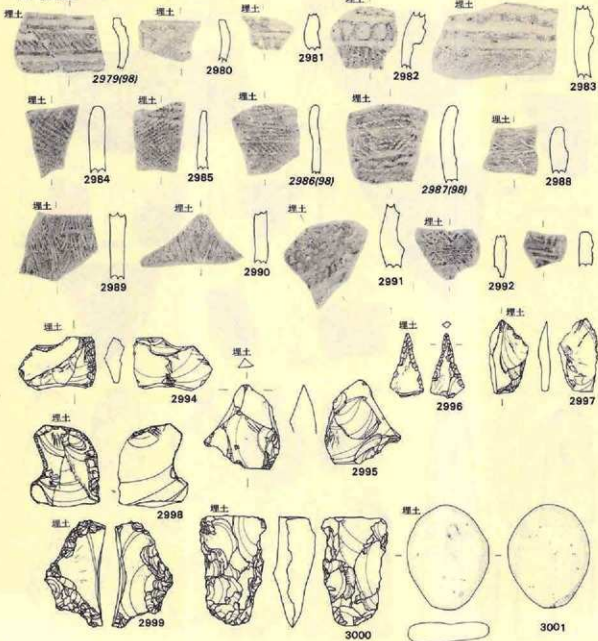 埋土 埋土 埋土 埋土 埋土
2979(98) 2980 2981 2982 2983
埋土 埋土 埋土 埋土 埋土
2984 2985 2986(98) 2987(98) 2988
埋土 埋土 埋土 埋土 埋土
2989 2990 2991 2992
埋土 埋土 埋土 埋土
2994 2995 2996 2997
埋土
2998
埋土 埋土 埋土
2999 3000 3001